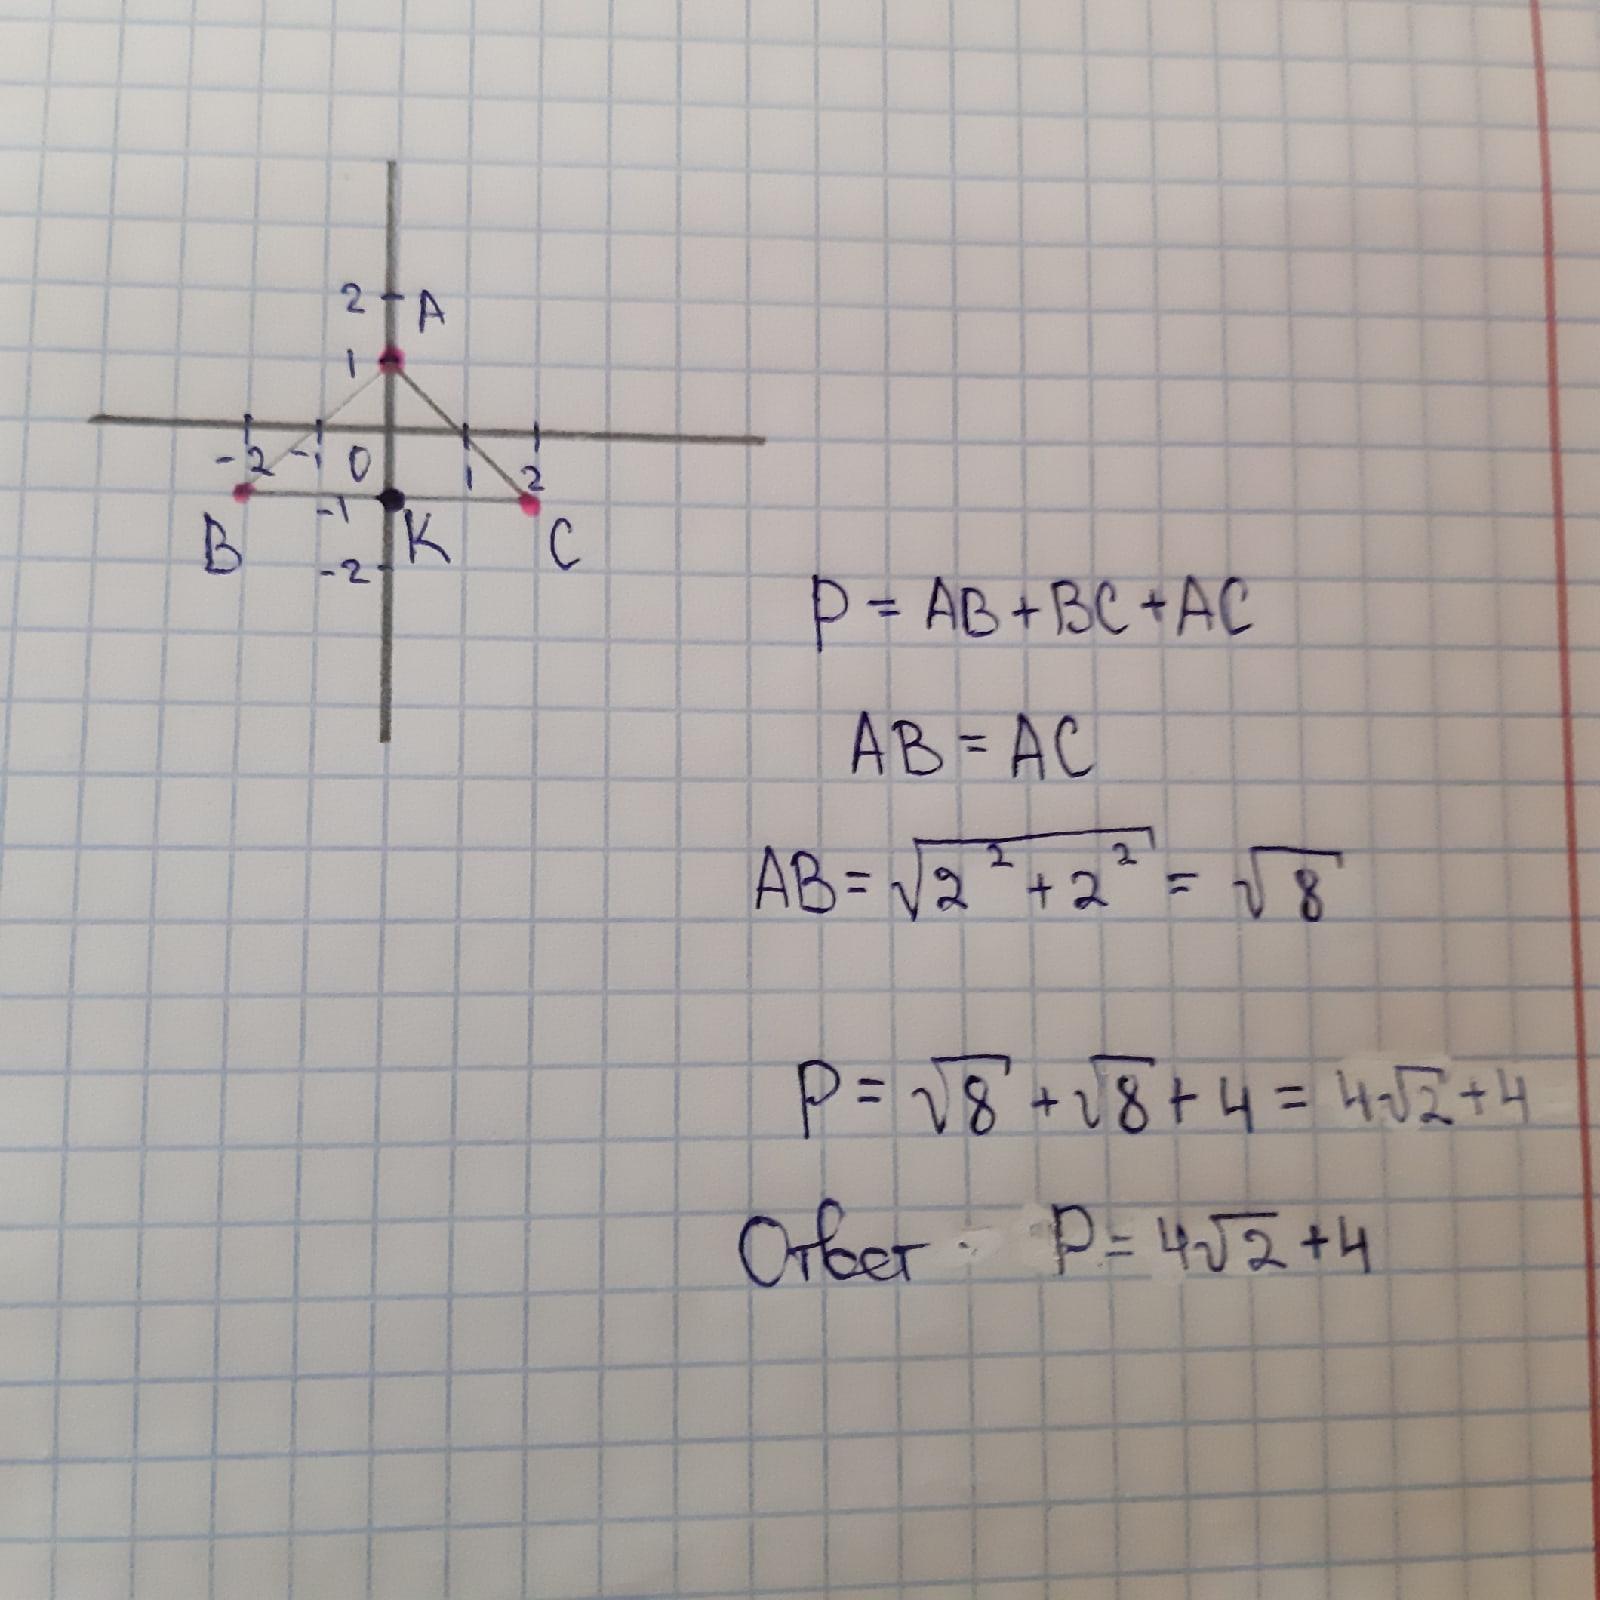 2 A
1
-2 -1 0 1 2
-1
B K C
-2
P = AB + BC + AC
AB = AC
AB = √2² + 2² = √8
P = √8 + √8 + 4 = 4√2 + 4
Ответ · P = 4√2 + 4